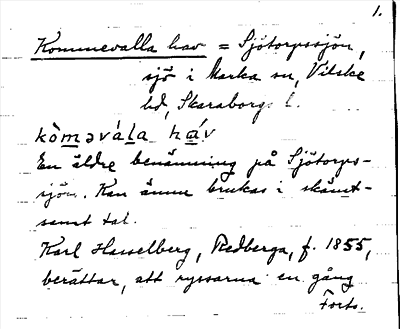 1.
Kommevalla hav = Sjötorpssjön,
sjö i Marka sn, Vilske
hd, Skaraborgs l.
kòməvála háv
En äldre benämning på Sjötorps-
sjön. Kan ännu brukas i skämt-
samt tal.
Karl Hasselberg, Redberga, f. 1855,
berättar, att ryssarna en gång
Forts.